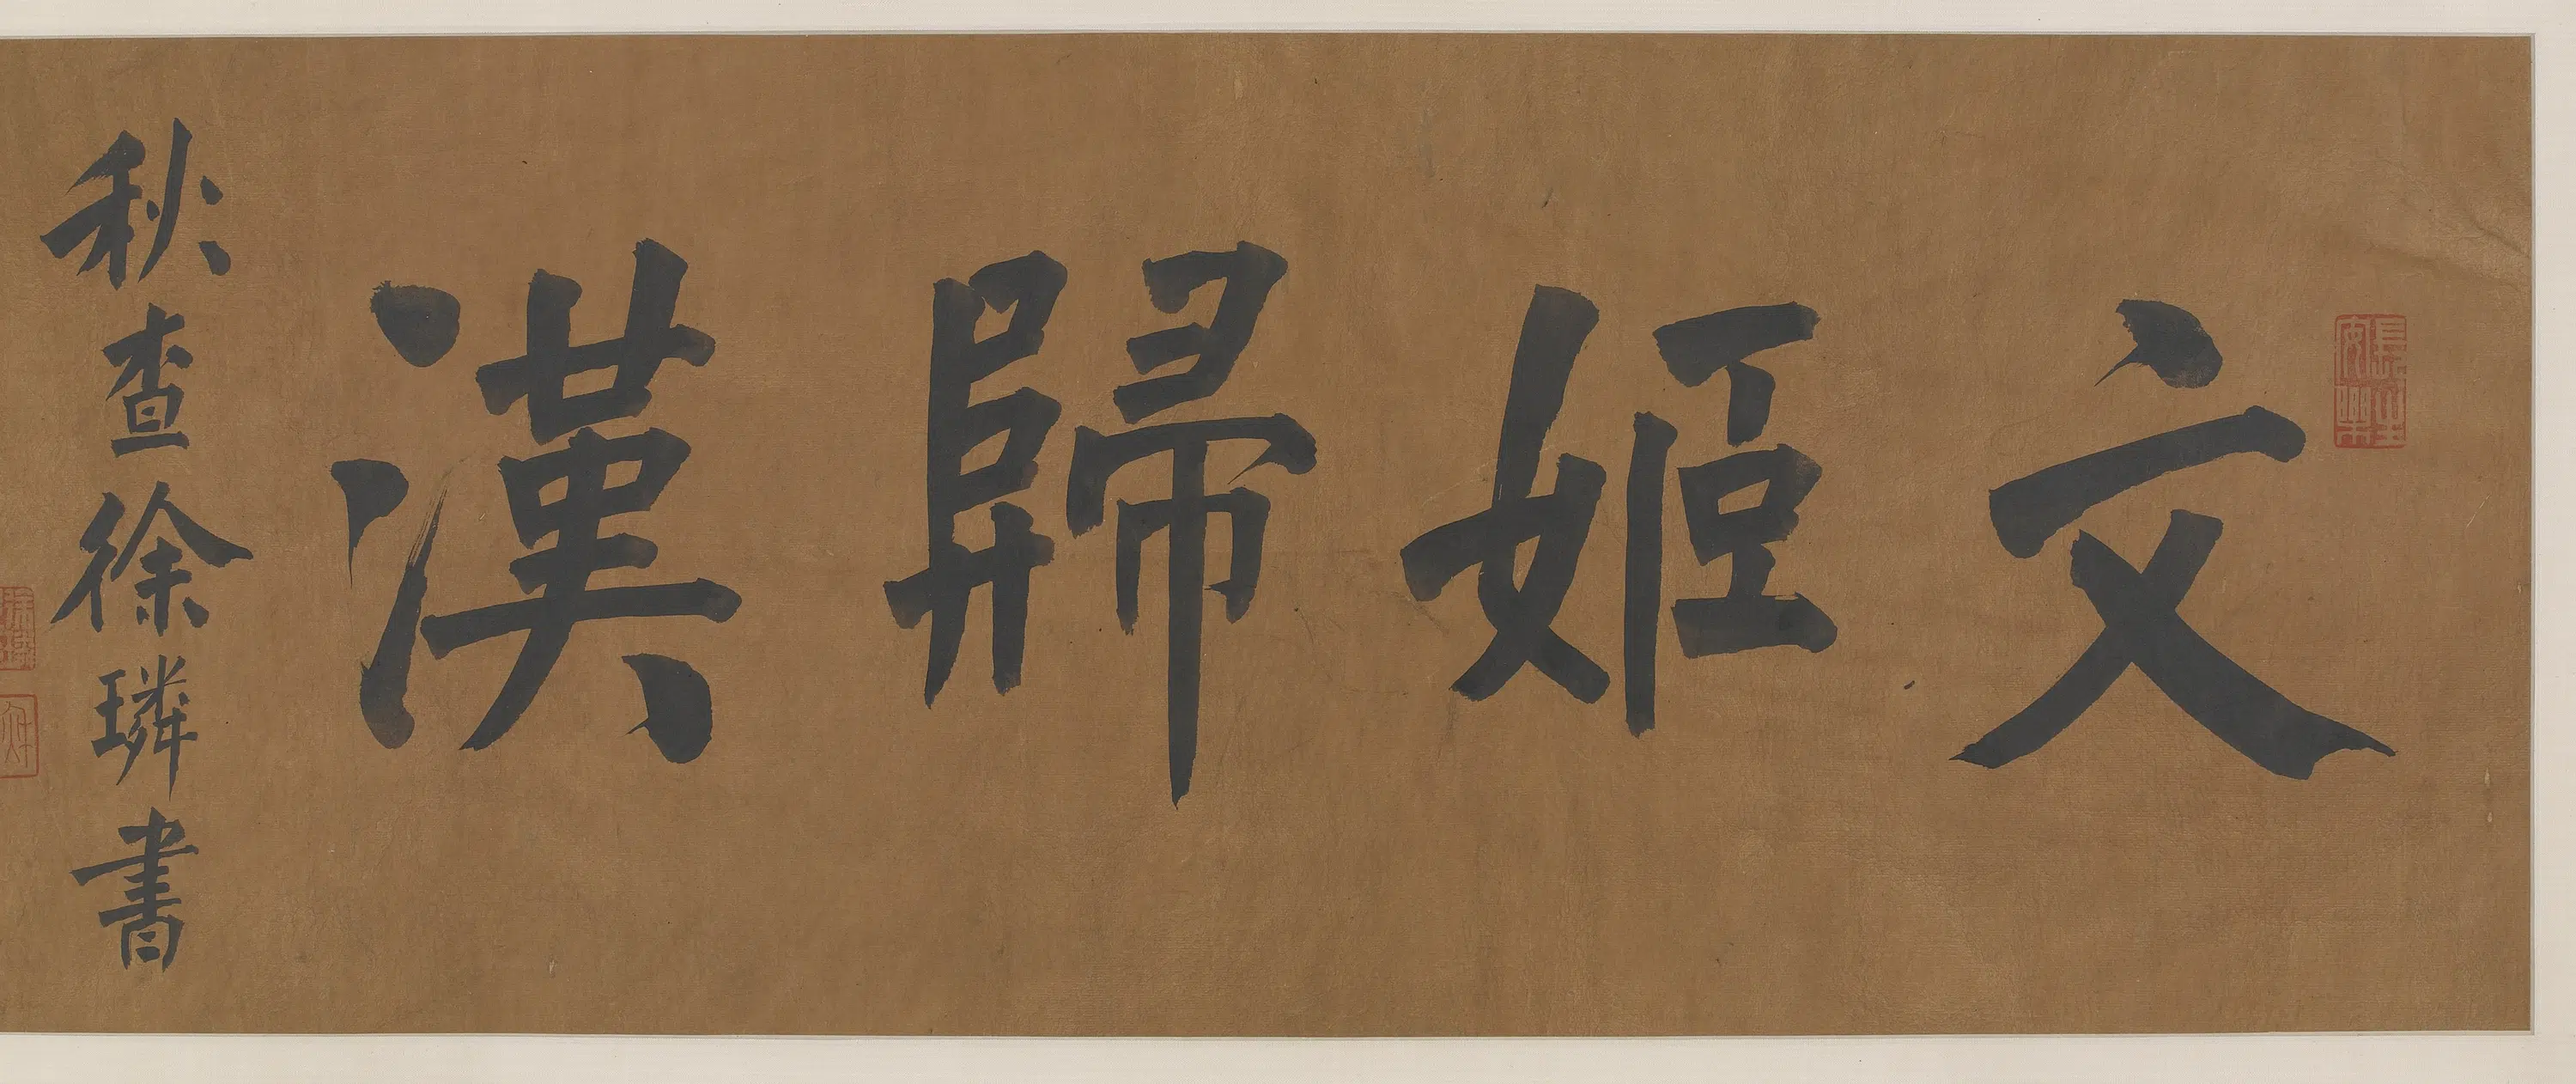 文姬歸漢
秋査徐璘書